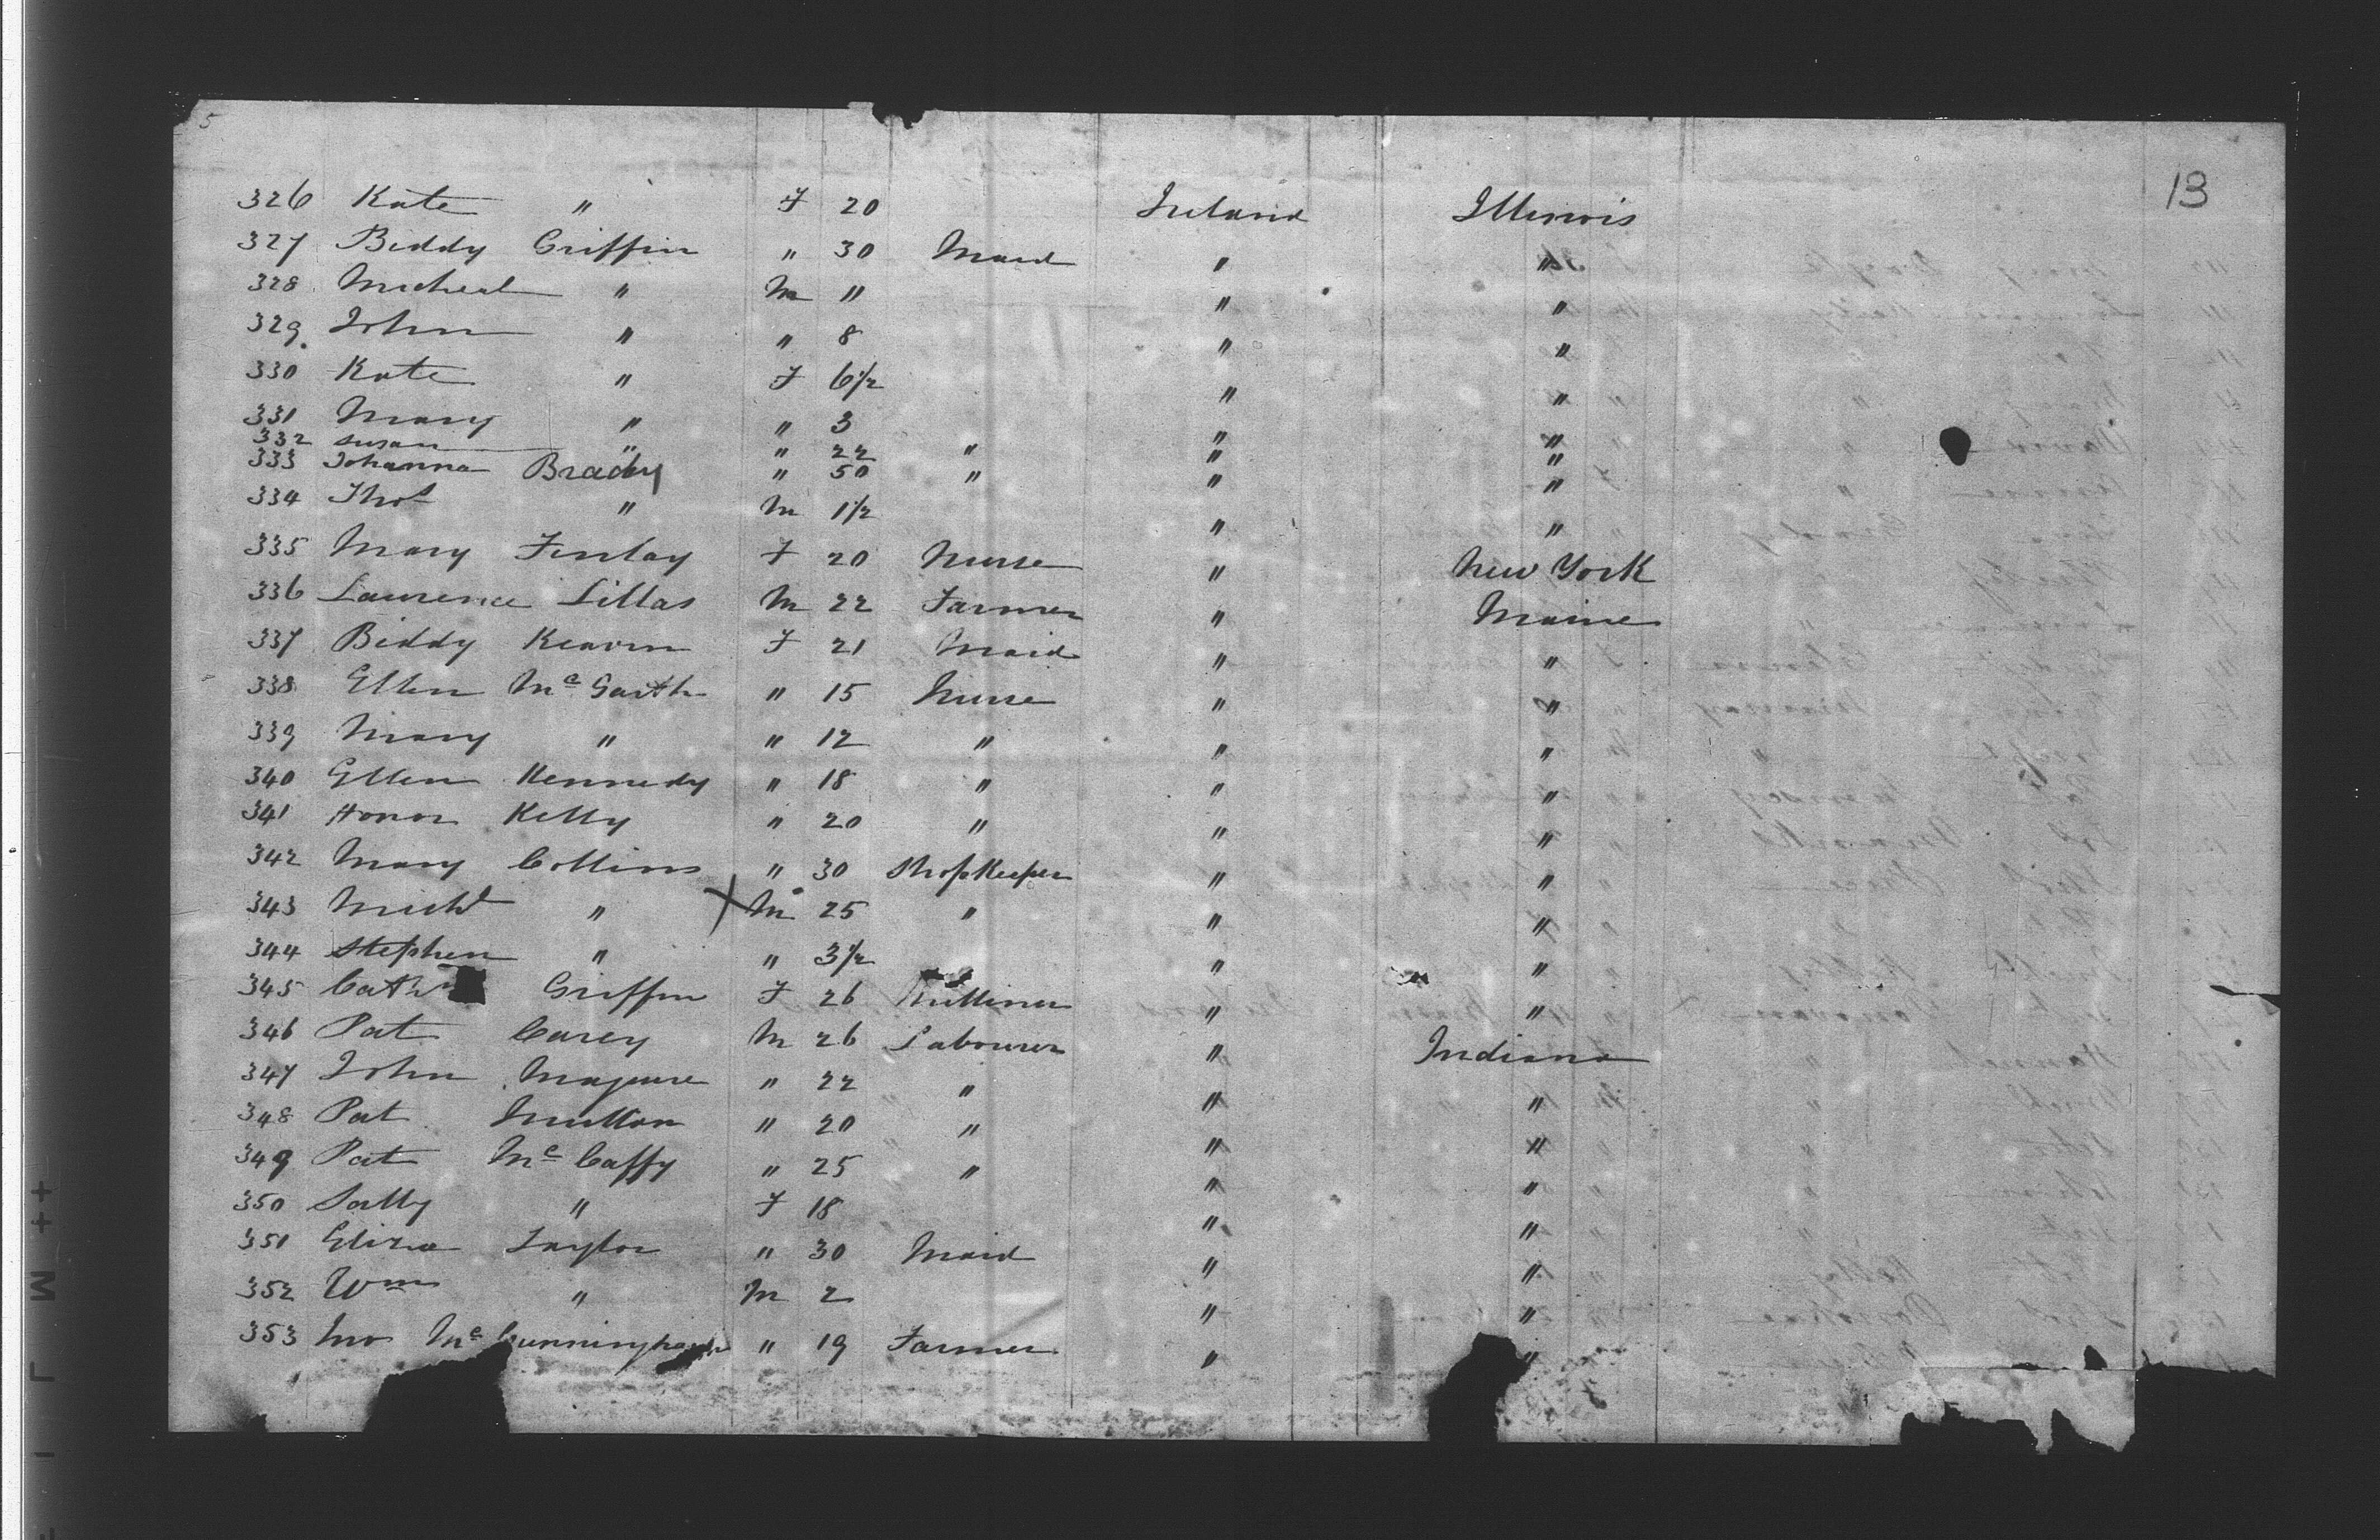 5
13
326 Kate " F 20 Ireland Illinois
327 Biddy Griffin " 30 Maid " "
328 Micheal " M 11 " "
329 John " " 8 " "
330 Kate " F 6½ " "
331 Mary " " 3 " "
332 Susan " " 22 " " "
333 Johanna Brady " 50 " " "
334 Thos " M 1½ " "
335 Mary Finlay F 20 Nurse " New York
336 Laurence Lillas M 22 Farmer " Maine
337 Biddy F 21 Maid " "
338 Ellen Mc Garth " 15 Nurse " "
339 Mary " " 12 " " "
340 Ellen Kennedy " 18 " " "
341 Honor Kelly " 20 " " "
342 Mary Collins " 30 Shopkeeper " "
343 Michl " X M 25 " " "
344 Stephen " " 3½ " "
345 Cath Griffin F 26 Milliner " "
346 Pat Carey M 26 Labourer " Indiana
347 John Maguire " 22 " " "
348 Pat " 20 " " "
349 Pat Mc Caffy " 25 " " "
350 Sally " F 18 " "
351 Eliza Taylor " 30 Maid " "
352 Wm " M 2 " "
353 Jno Mc Cunningham " 19 Farmer " "